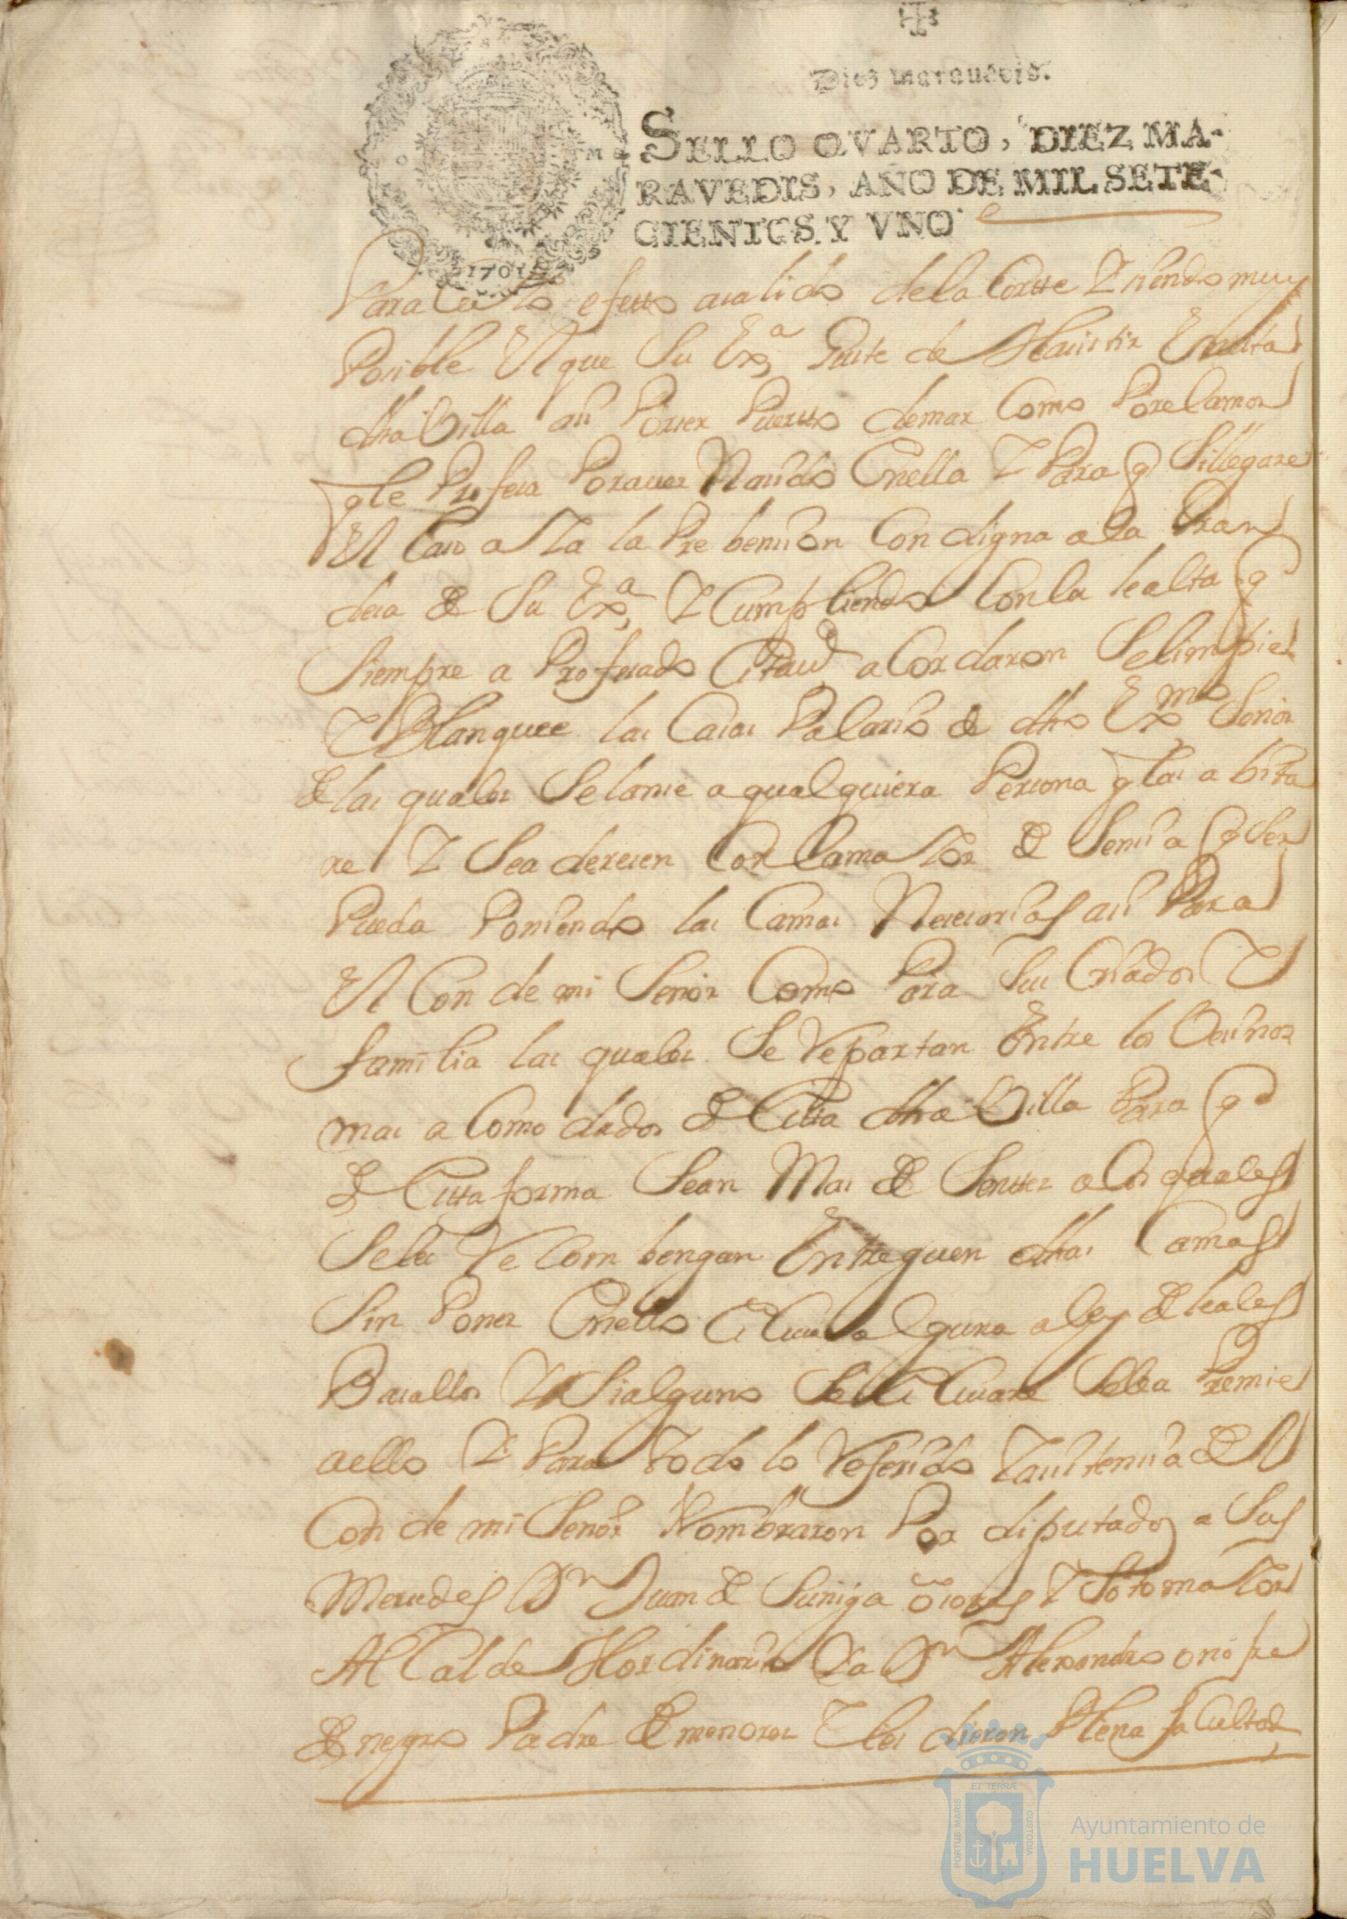 Diez marauedis.
SELLO QVARTO, DIEZ MA-
RAVEDIS, AÑO DE MIL SETE-
CIENTOS Y VNO
1701
Para efetto a salido de la Cortte Y siendo muy
Posible El que Su Exa Guste de Hasistir En esta
dha Villa asi Por ser Puertto de mar Como Por el amor
q le Profesa Por auer Nasido En ella Y Para q Si llegare
El Caso aya la Prebension Condigna a la Gran
desa de Su Exa Y Cumpliendo Con la lealta q
Siempre a Profesado a Cordaron Se limpie
Y Blanquee las Casas Palasio de dho Exmo Señor
de las quales Se lanse a qualquiera Persona q las abita
re Y Se aderesen Con la mayor desensia q Ser
Pueda Poniendo las Camas Nesesarias asi Para
El Conde mi Señor Como Para Sus Criados Y
familia las quales Se Repartan Entre los Vesinos
mas a Como dados de Esta dha Villa Para q
de Esta forma Sean Mas desentes a los quales
Se les Recombengan Entreguen dhas Camas
Sin Poner En ello Escusa alguna a ley de leales
Basallos Y Si alguno Se Escusare Se le a Premie
a ello Y Para todo lo Referido Y asistensia del
Conde mi Señor Nombraron Por diputados a Sus
Mersedes Dn Juan de Suniga Y Sotomayor
Alcalde Hordinario Y a Dn Alexandro onofre
de negro Padre de menores Y les dieron Plena facultad
PORTUS MARIS
ET TERRÆ
CUSTODIA
Ayuntamiento de
HUELVA